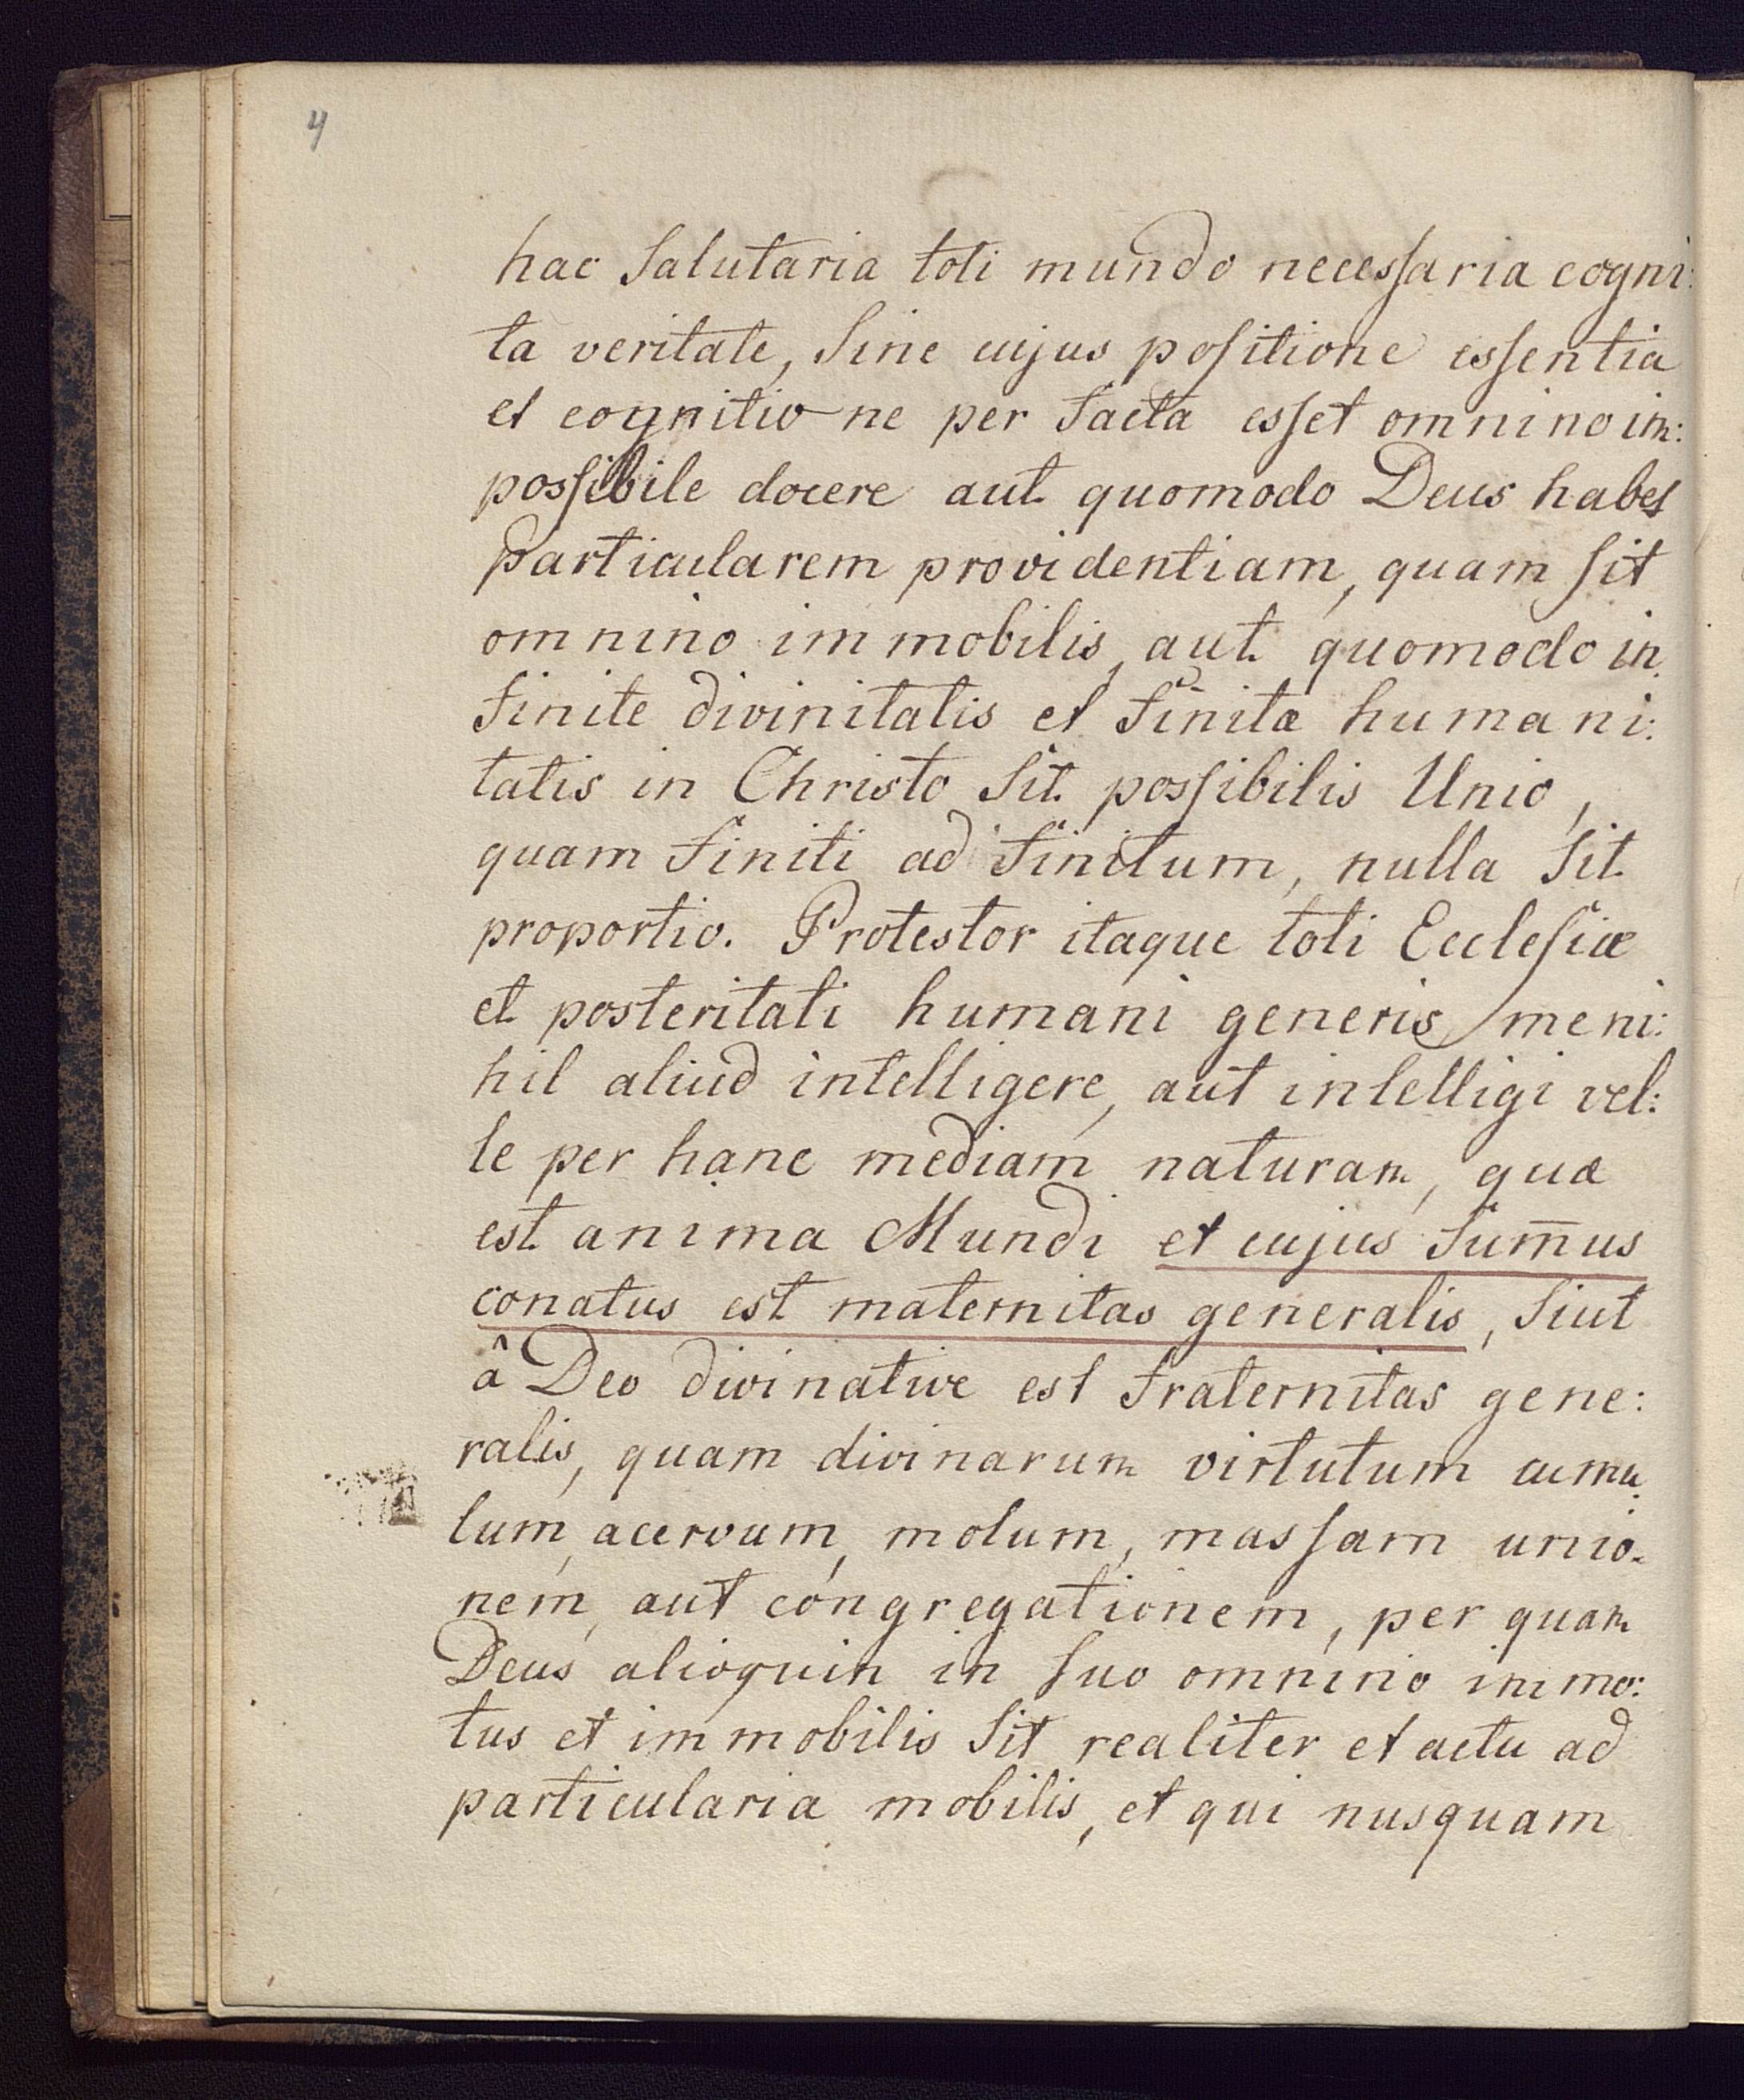 4
hac Salutaria toti mundo necessaria cogni:
ta veritate, Sine cujus positione essentia
et cognitione per Sacta esset omnino im:
possibile docere aut quomodo Deus habet
particularem providentiam, quam sit
omnino immobilis, aut quomodo in:
finite divinitatis et finitæ humani:
tatis in Christo Sit possibilis Unio,
quam finiti ad finitum, nulla Sit
proportio. Protestor itaque toti Ecclesiæ
et posteritati humani generis me ni:
hil aliud intelligere, aut intelligi vel:
le per hanc mediam naturam, quæ
est anima Mundi et cujus Sum̄us
conatus est maternitas generalis, Siut
â Deo divinative est fraternitas gene:
ralis, quam divinarum virtutum cumu:
lum, acervum, molum, massam unio:
nem, aut congregationem, per quam
Deus alioquin in suo omnino immo:
tus et immobilis Sit realiter et actu ad
particularia mobilis, et qui nusquam